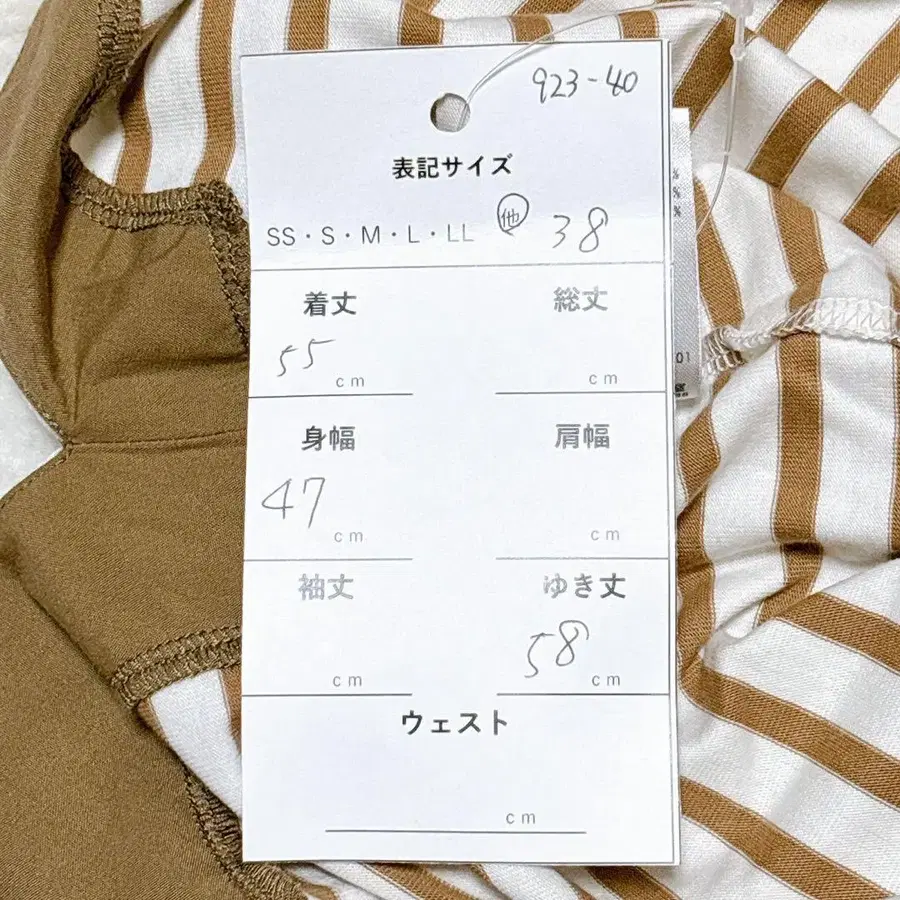 923-40
表記サイズ
SS・S・M・L・LL 他 38
着丈 総丈
55 cm cm
身幅 肩幅
47 cm cm
袖丈 ゆき丈
cm 58 cm
ウェスト
cm
%
%
%
01